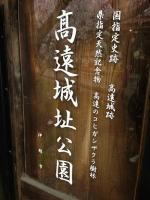 国指定史跡 高遠城跡
県指定天然記念物 高遠のコヒガンザクラ樹林
高遠城址公園
伊那市